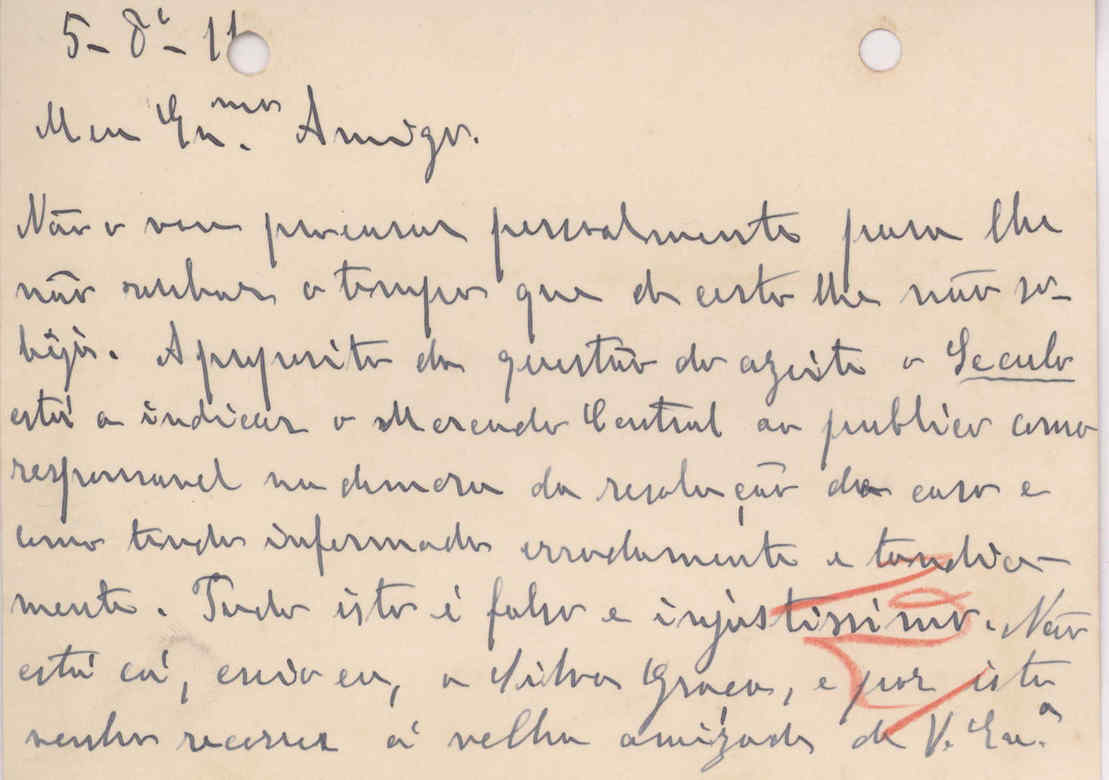 5-8º-11
Meu Exmo. Amigo.
Não o vou procurar pessoalmente para lhe
não roubar o tempo que de certo lhe não so-
beja. A proposito da questão do azeite o Seculo
está a indicar o Mercado Central ao publico como
responsavel na demora da resolução do caso e
como tendo informado erradamente e tardia-
mente. Tudo isto é falso e injustissimo. Não
está cá, creio eu, o Silva Graça, e por isto
venho recorrer á velha amizade de V. Exa